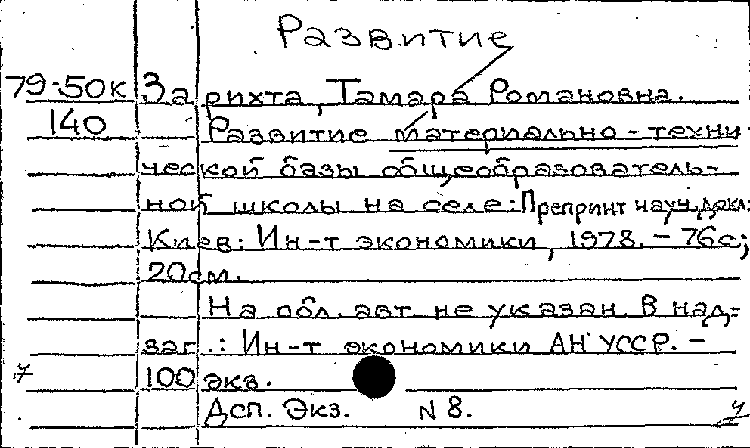 Развитие
79-50к Зарихта, Тамара Романовна.
140 Развитие материально-техни
ческой базы общеобразователь-
ной школы на селе: Препринт науч. докл.
Киев: Ин-т экономики, 1978. - 76с;
20см.
На обл. авт. не указан. В над-
заг.: Ин-т экономики АН УССР. -
100 экз.
Дсп. Экз. N 8.